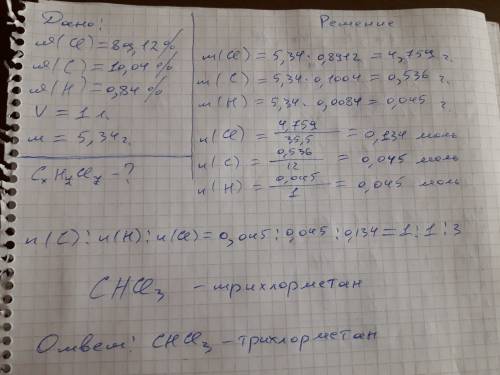 Дано:
ω(Cl) = 89,12%
ω(C) = 10,04%
ω(H) = 0,84%
V = 1 л.
m = 5,34 г.
CxHyClz - ?
Решение
m(Cl) = 5,34 · 0,8912 = 4,759 г.
m(C) = 5,34 · 0,1004 = 0,536 г.
m(H) = 5,34 · 0,0084 = 0,045 г.
n(Cl) = 4,759/35,5 = 0,134 моль
n(C) = 0,536/12 = 0,045 моль
n(H) = 0,045/1 = 0,045 моль
n(C) : n(H) : n(Cl) = 0,045 : 0,045 : 0,134 = 1 : 1 : 3
CHCl3 - трихлорметан
Ответ: CHCl3 - трихлорметан